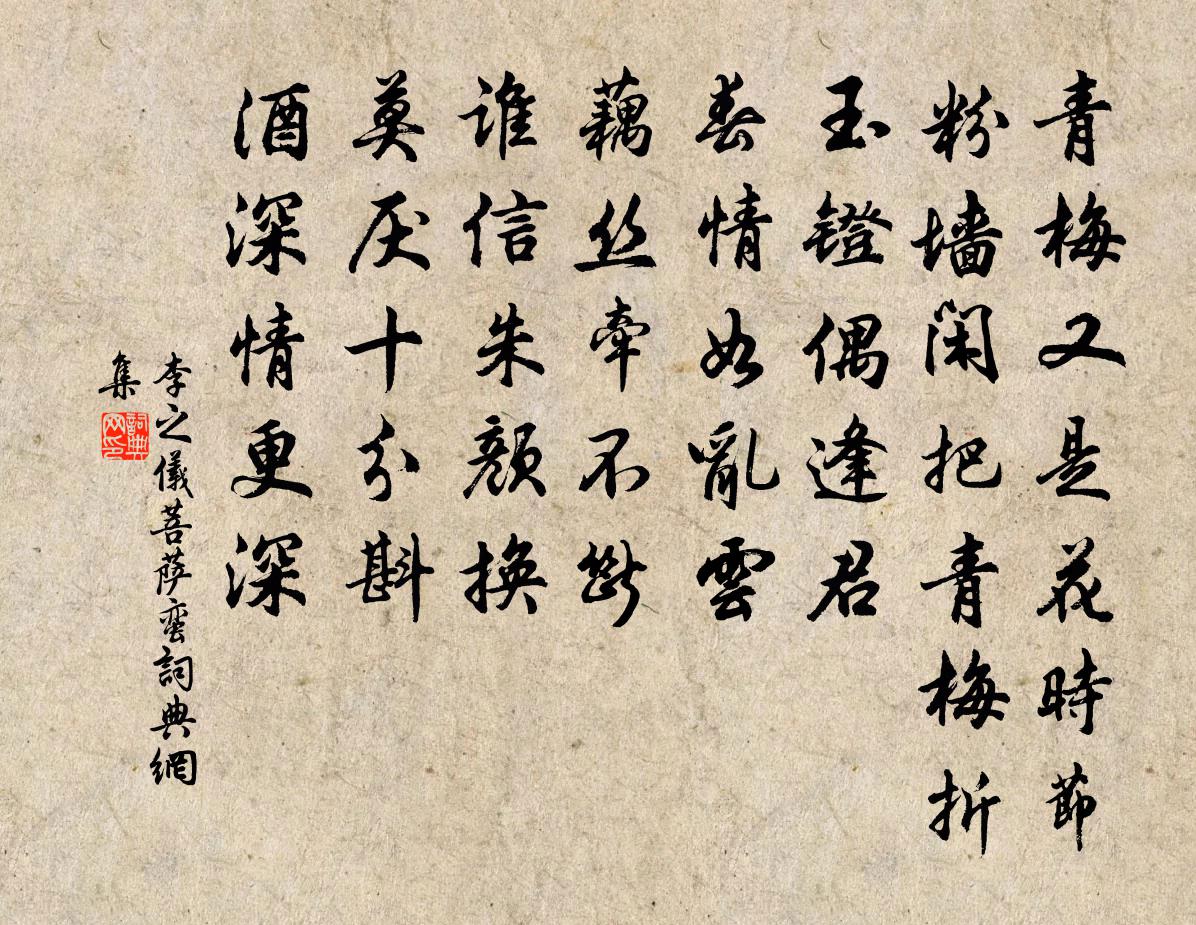 青梅又是花時節
粉墻閑把青梅折
玉鐙偶逢君
春情如亂雲
藕丝牽不斷
谁信朱顏換
莫厌十分斟
酒深情更深
李之儀菩萨蛮詞典網
集
詞典
网印